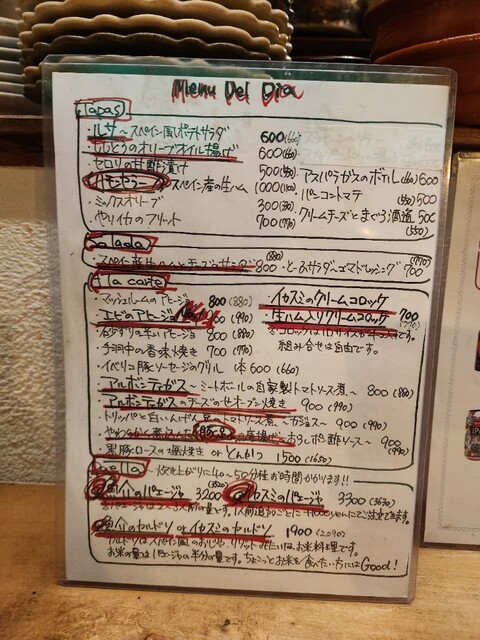 Menu Del Dia
Tapas
・ルサ～スペイン風ポテトサラダ 600(660)
オリーブオイル揚げ 600(660)
・セロリの甘酢づけ 500(550)
・アスパラガスのボカレ(660)600
ハモンセラーノ スペイン産の生ハム 1000(1100)
・パンコントマテ (550)500
・ミックスオリーブ 300(330)
・クリームチーズとまぐろ酒盗 500
(550)
・やりイカのフリット 700(770)
Salada
・スペイン産生ハムとチーズのサラダ 800
(880)
・とーふサラダ～ゴマドレッシング 700
(770)
A la carte
・マッシュルームのアヒージョ 800(880)
・イカスミのクリームコロッケ
・エビのアヒージョ (990)
・生ハム入りクリームコロッケ 700
(770)
・砂ずりの辛いアヒージョ 800(880)
※コロッケは
組み合せは自由です。
・子羊の香味焼き 700(770)
・イベリコ豚ソーセージのグリル 1本600(660)
・アルボンディガス～ミートボールの自家製トマトソース煮～ 800(880)
・アルボンディガスのチーズのせオーブン焼き 900(990)
・トリッパと白いんげん豆のトマトソース煮～カジョス～ 900(990)
おろしポン酢ソース～ 900
(990)
・黒豚ロースの塩焼き or とんかつ 1500(1650)
Paella
・炊き上がりに40~50分程お時間かかります!!
魚介のパエージャ 3200
(3520)
イカスミのパエージャ 3300(3630)
魚介のカルドソ or イカスミのカルドソ 1900(2090)
カルドソはスペイン風のおじや、リゾットみたいなお米料理です。
お米の量はパエージャの半分の量です。ちょこっとお米を食べたい方にはGood!